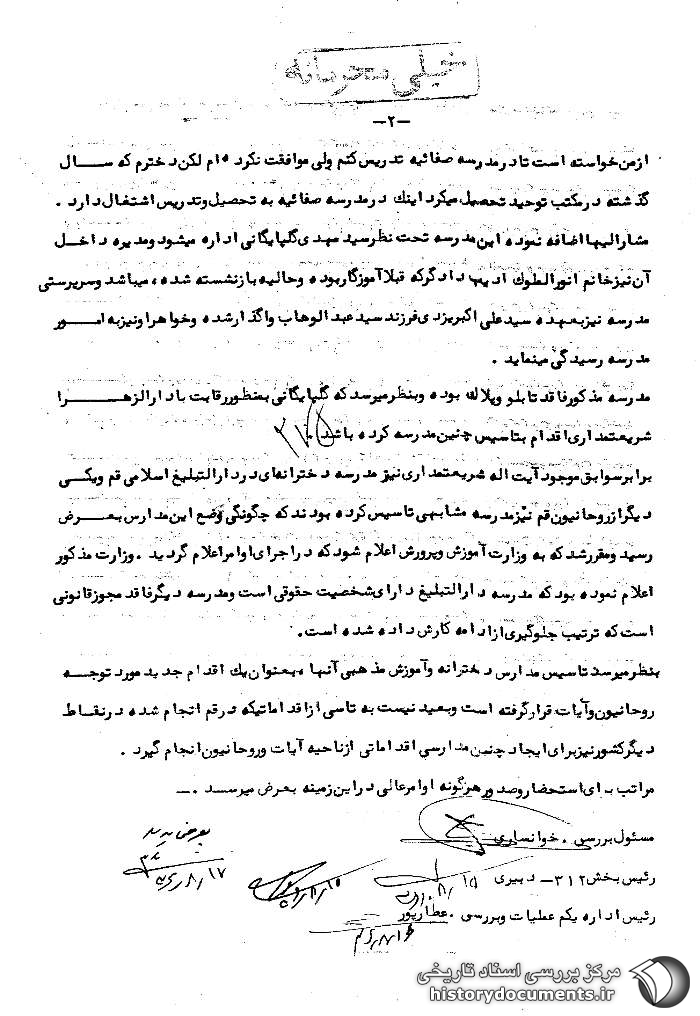 خیلی محرمانه
-۲-
ازمن خواسته است تادرمدرسه صفائیه تدریس کنم ولی موافقت نکرده ام لکن دخترم که سال
گذشته درمکتب توحید تحصیل میکرد اینك درمدرسه صفائیه به تحصیل وتدریس اشتغال دارد .
مشارالیها اضافه نموده این مدرسه تحت نظرسید مهدی گلپایگانی اداره میشود ومدیره داخل
آن نیزخانم انورالطوك ادیب دادگرکه قبلا آموزگاربوده وحالیه بازنشسته شده ، میباشد وسرپرستی
مدرسه نیزبعهده سیدعلی اکبریزدی فرزند سیدعبدالوهاب واگذارشده وخواهراونیزبه امور
مدرسه رسیدگی مینماید .
مدرسه مذکورفاقد تابلو وپلاك بوده وبنظرمیرسدکه گلپایگانی بمنظوررقابت بادارالزهرا
شریعتمداری اقدام بتاسیس چنین مدرسه کرده باشد .
برابرسوابق موجود آیت اله شریعتمداری نیز مدرسه دخترانه ای دردارالتبلیغ اسلامی قم ویکی
دیگرازروحانیون قم نیزمدرسه مشابهی تاسیس کرده بودند که چگونگی وضع این مدارس بعرض
رسید ومقررشد که به وزارت آموزش وپرورش اعلام شود که دراجرای اوامراعلام گردید . وزارت مذکور
اعلام نموده بود که مدرسه دارالتبلیغ دارای شخصیت حقوقی است ومدرسه دیگرفاقد مجوزقانونی
است که ترتیب جلوگیری ازادامه کارش داده شده است .
بنظرمیرسد تاسیس مدارس دخترانه وآموزش مذهبی آنها ، بعنوان یك اقدام جدید مورد توجه
روحانیون وآیات قرارگرفته است وبعید نیست به تاسی ازاقداماتیکه درقم انجام شده درنقاط
دیگرکشورنیزبرای ایجاد چنین مدارسی اقداماتی ازناحیه آیات وروحانیون انجام گیرد .
مراتب برای استحضاروصدورهرگونه اوامرعالی دراین زمینه بعرض میرسد .
مسئول بررسی . خوانساری
رئیس بخش ۳۱۲ - دبیری
رئیس اداره یکم عملیات وبررسی . عطارپور
مرکز بررسی اسناد تاریخی
historydocuments.ir